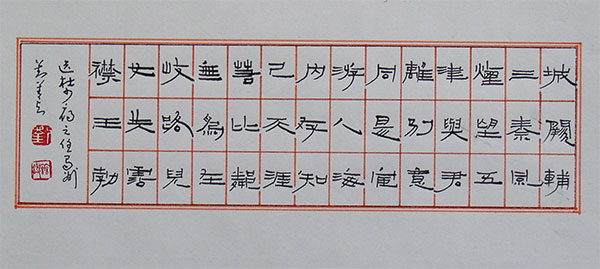 城闕輔
三秦風
煙望五
津與君
離別意
同是宦
游人海
内存知
己天涯
若比鄰
無爲在
岐路兒
女共霑
襟王勃
送杜少府之任蜀州